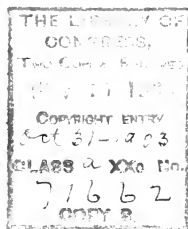 THE LIBRARY OF
CONGRESS,
TWO COPIES RECEIVED
COPYRIGHT ENTRY
Oct 31-1903
CLASS a XXc No.
71662
COPY B